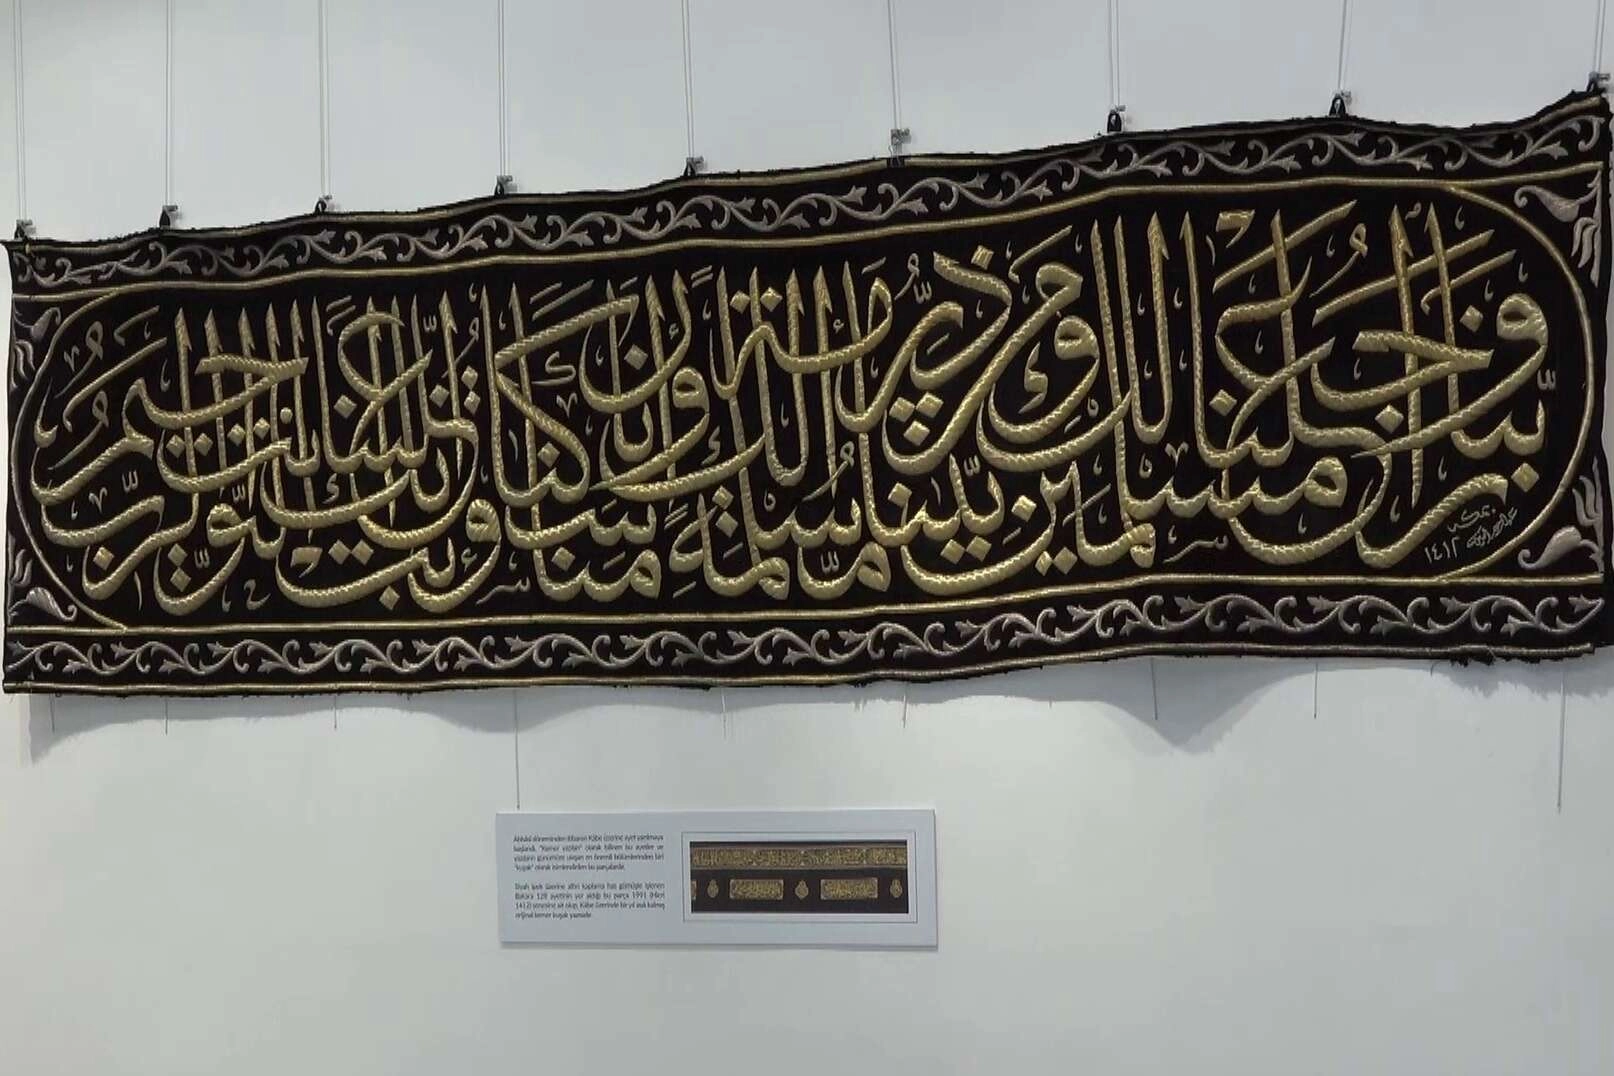 ربنا واجعلنا مسلمين لك ومن ذريتنا أمة مسلمة لك وأرنا مناسكنا وتب علينا إنك أنت التواب الرحيم
١٤١٢
Abbâsî döneminden itibaren Kâbe üzerine ayet yazılmaya
başlandı. "Kemer yazıları" olarak bilinen bu ayetler ve
yazıların günümüze ulaşan en önemli bölümlerinden biri
"kuşak" olarak isimlendirilen bu parçalardır.
Siyah ipek üzerine altın kaplama has gümüşle işlenen
Bakara 128 ayetinin yer aldığı bu parça 1991 (Hicri
1412) senesine ait olup, Kâbe üzerinde bir yıl asılı kalmış
orijinal kemer kuşak yazısıdır.